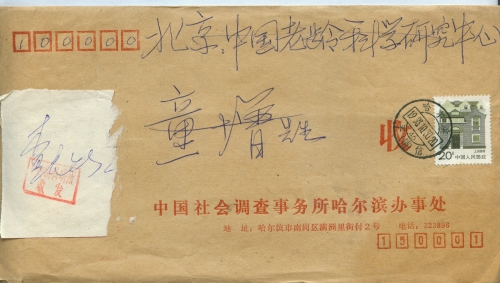 100000
北京:中国老龄科学研究中心
童增 先生
收
20分 中国人民邮政
中国社会调查事务所哈尔滨办事处
地 址:哈尔滨市南岗区满洲里街付2号 电话:323856
150001